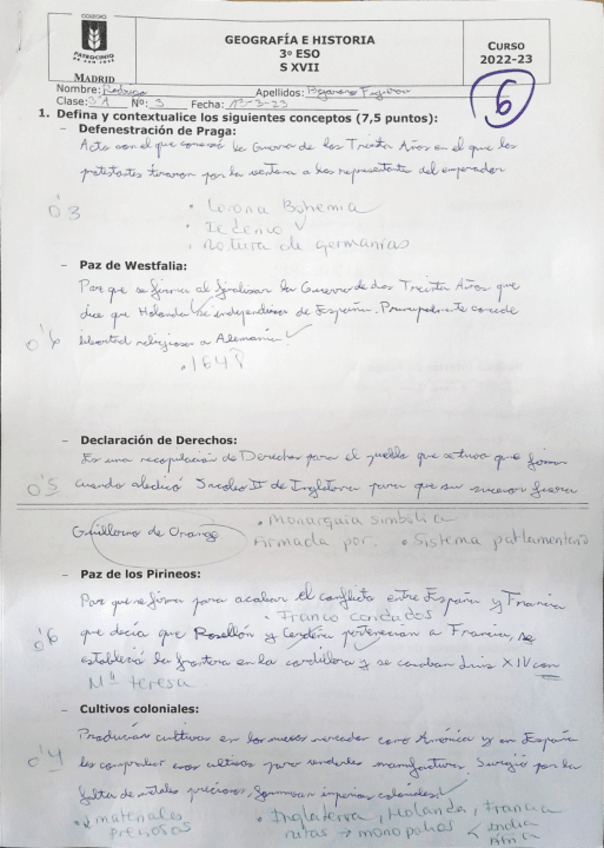 COLEGIO
PATROCINIO
DE SAN JOSÉ
MADRID
GEOGRAFÍA E HISTORIA
3º ESO
S XVII
CURSO
2022-23
Nombre: Rodrigo Apellidos:
Clase: 3ºA Nº: 3 Fecha: -3-23
6
1. Defina y contextualice los siguientes conceptos (7,5 puntos):
– Defenestración de Praga:
Acto con el que comenzó la Guerra de los Treinta Años en el que los
protestantes tiraron por la ventana a los representante del emperador
0'3
• Corona Bohemia
• Federico V
• Rotura de germanias
– Paz de Westfalia:
Paz que se firma al finalizar la Guerra de los Treinta Años que
dice que Holanda se independiza de España. Principalmente concede
libertad religiosa a Alemania.
0'6
• 1648
– Declaración de Derechos:
Es una recopilación de Derechos para el pueblo que se tuvo que firmar
0'5 cuando abdicó II de Inglaterra para que su sucesor fuera
Guillermo de Orange
• Monarquía simbólia
Armada por. • Sistema parlamentario
– Paz de los Pirineos:
Paz que se firma para acabar el conflicto entre España y Francia
• Franco condados
0'6 que decía que Rosellón y Cerdeña pertenecían a Francia, se
estableció la frontera en la cordillera y se casaban Luis XIV con
Mª teresa
– Cultivos coloniales:
Producían cultivos en los nuevos mercados como América y en España
0'4 les compraban esos cultivos para venderles manufacturas. Surgió por la
falta de metales preciosos, formaron imperios coloniales.
• materiales
preciosos
• Inglaterra, Holanda, Francia
rutas → monopolios < India